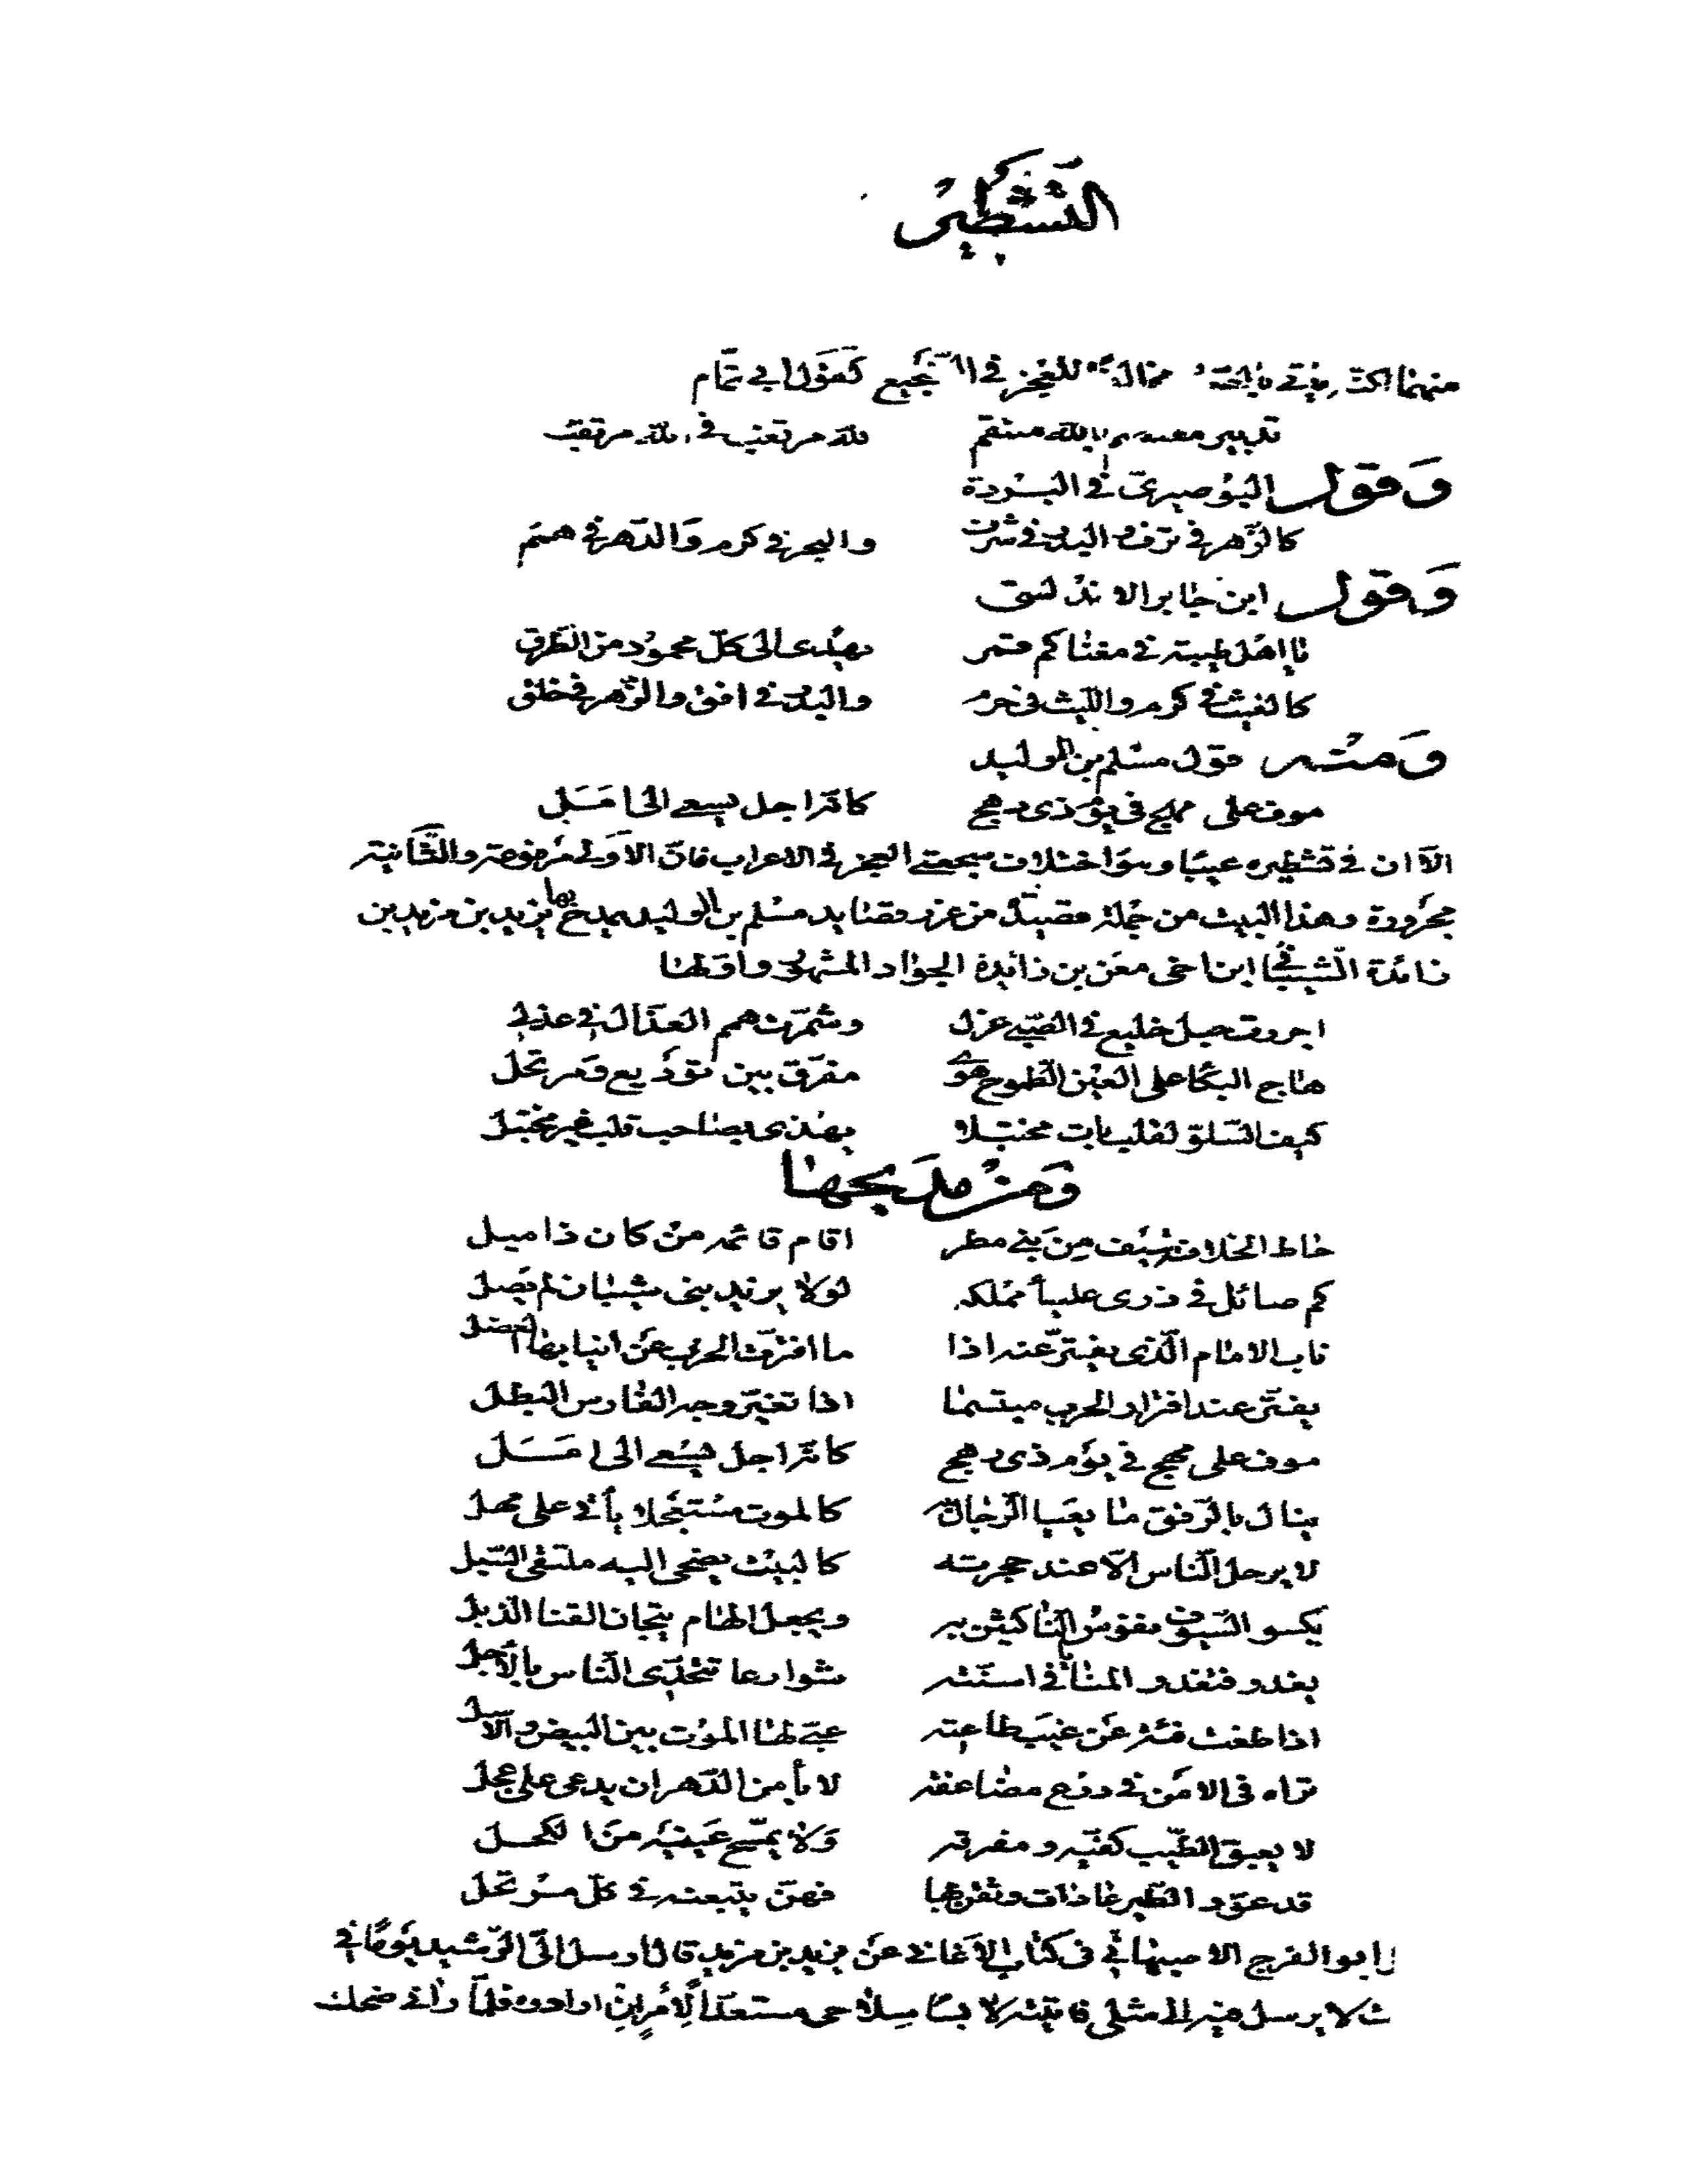 التشطير
منهما اكت بقافية مخالفة للعجز في التسجيع كقول ابي تمام
تدبير معتصم بالله منتقم لله مرتغب في الله مرتقب
وقول البوصيري في البردة
كالزهر في ترف والبدر في شرف والبحر في كرم والدهر في همم
وقول ابن جابر الاندلسي
يا اهل طيبة في مغناكم قمر يهدى الى كل محمود من الطرق
كالغيث في كرم والليث في حرم والبدر في افق والزهر في خلق
ومنه قول مسلم بن الوليد
موف على مهج في يوم ذى رهج كانه اجل يسعى الى امل
الا ان في تشطيره عيبا وهو اختلاف سجعتي العجز في الاعراب فان الاولى مرفوعة والثانية
مجرورة وهذا البيت من جملة قصيدة من غرر قصايد مسلم بن الوليد يمدح بها يزيد بن مزيد بن
زائدة الشيباني ابن اخى معن بن زائدة الجواد المشهور واولها
اجررت حبل خليع في الصبى غزل وشمرت همم العذال في عذلي
هاج البكا على العين الطموح هوى مفرق بين توديع ومرتحل
كيف السلو لقلب بات مختبلا يهذى بصاحب قلب غير مختبل
ومن مديحها
حاط الخلافة سيف من بني مطر اقام قائمه من كان ذا ميل
كم صائل في ذرى علياء مملكه لولا يزيد بنى شيبان لم يصل
ناب الامام الذى يفتر عنه اذا ما افترت الحرب عن انيابها العضل
يفتر عند افترار الحرب مبتسما اذا تغير وجه الفارس البطل
موف على مهج في يوم ذى رهج كانه اجل يسعى الى امل
ينال بالرفق ما يعيا الرجال به كالموت مستعجلا يأتي على مهل
لا يرحل الناس الا عند حجرته كالبيت يضحى اليه ملتقى السبل
يكسو السيوف نفوس الناكثين به ويجعل الهام تيجان القنا الذبل
يغدو فتغدو المنايا في اسنته شوارعا تتحدى الناس بالاجل
اذا طغت فئة عن غيب طاعته عبى لها الموت بين البيض والاسل
تراه فى الامن في درع مضاعفة لا يأمن الدهر ان يدعى على عجل
لا يعبق الطيب كفيه ومفرقه ولا يمسح عينيه من الكحل
قد عود الطير عادات وثقن بها فهن يتبعنه في كل مرتحل
ابو الفرج الاصبهاني فى كتاب الاغاني عن يزيد بن مزيد قال ارسل الى الرشيد يوما في
لا يرسل فيه الى مثلى فاتيته لابسا سلاحى مستعدا لامر ان اراده فلما رانى ضحك